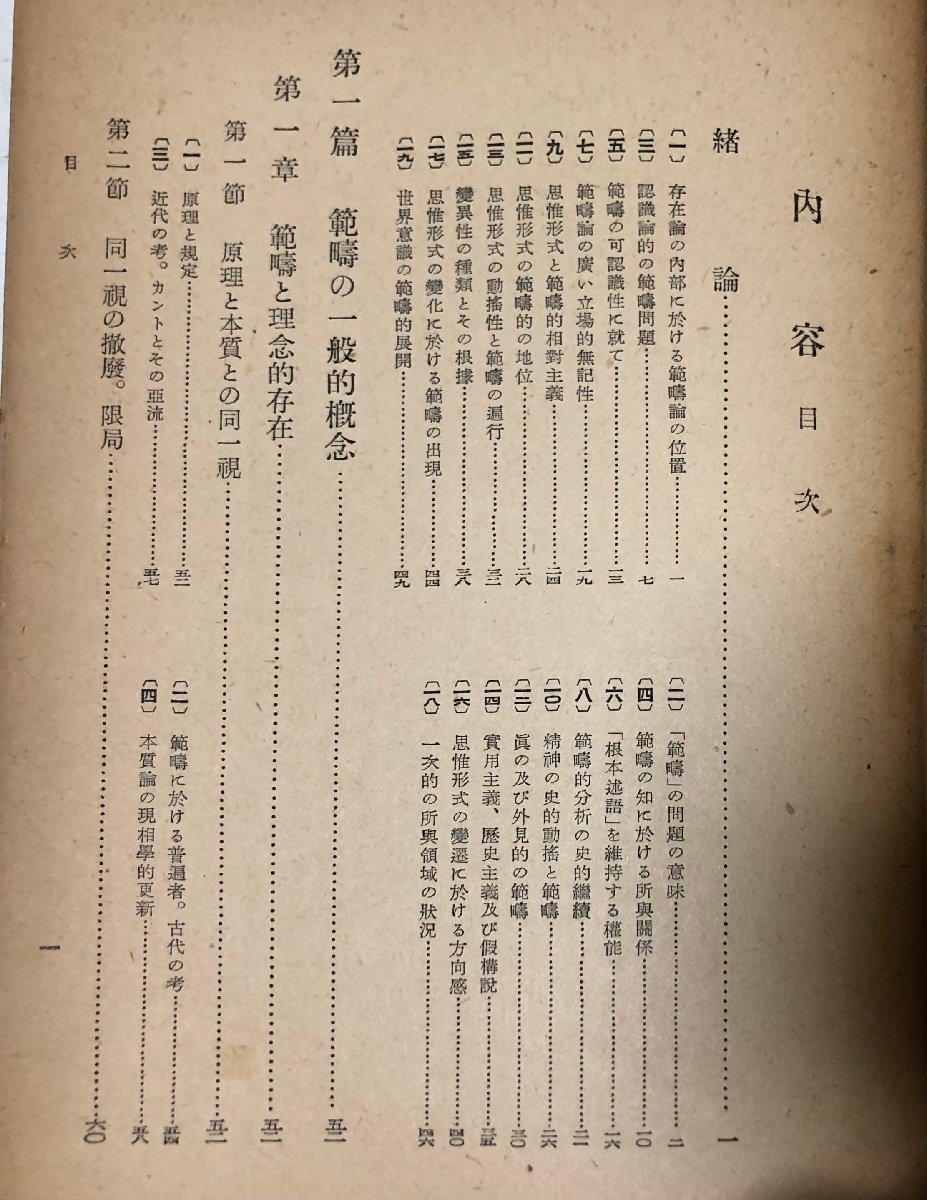 內容目次
緒論……一
〔一〕 存在論の內部に於ける範疇論の位置……一
〔二〕 「範疇」の問題の意味……二
〔三〕 認識論的の範疇問題……七
〔四〕 範疇の知に於ける所與關係……一〇
〔五〕 範疇の可認識性に就て……一三
〔六〕 「根本述語」を維持する權能……一六
〔七〕 範疇論の廣い立場的無記性……一九
〔八〕 範疇的分析の史的繼續……二二
〔九〕 思惟形式と範疇的相對主義……二四
〔一〇〕 精神の史的動搖と範疇……二六
〔一一〕 思惟形式の範疇的の地位……二八
〔一二〕 眞の及び外見的の範疇……三〇
〔一三〕 思惟形式の動搖性と範疇の遍行……三二
〔一四〕 實用主義、歷史主義及び假構說……三五
〔一五〕 變異性の種類とその根據……三八
〔一六〕 思惟形式の變遷に於ける方向感……四〇
〔一七〕 思惟形式の變化に於ける範疇の出現……四四
〔一八〕 一次的の所與領域の狀況……四六
〔一九〕 世界意識の範疇的展開……四九
第一篇 範疇の一般的槪念……五二
第一章 範疇と理念的存在……五二
第一節 原理と本質との同一視……五二
〔一〕 原理と規定……五二
〔二〕 範疇に於ける普遍者。古代の考……五四
〔三〕 近代の考。カントとその亞流……五七
〔四〕 本質論の現相學的更新……五八
第二節 同一視の撤廢。限局……六〇
目次
一